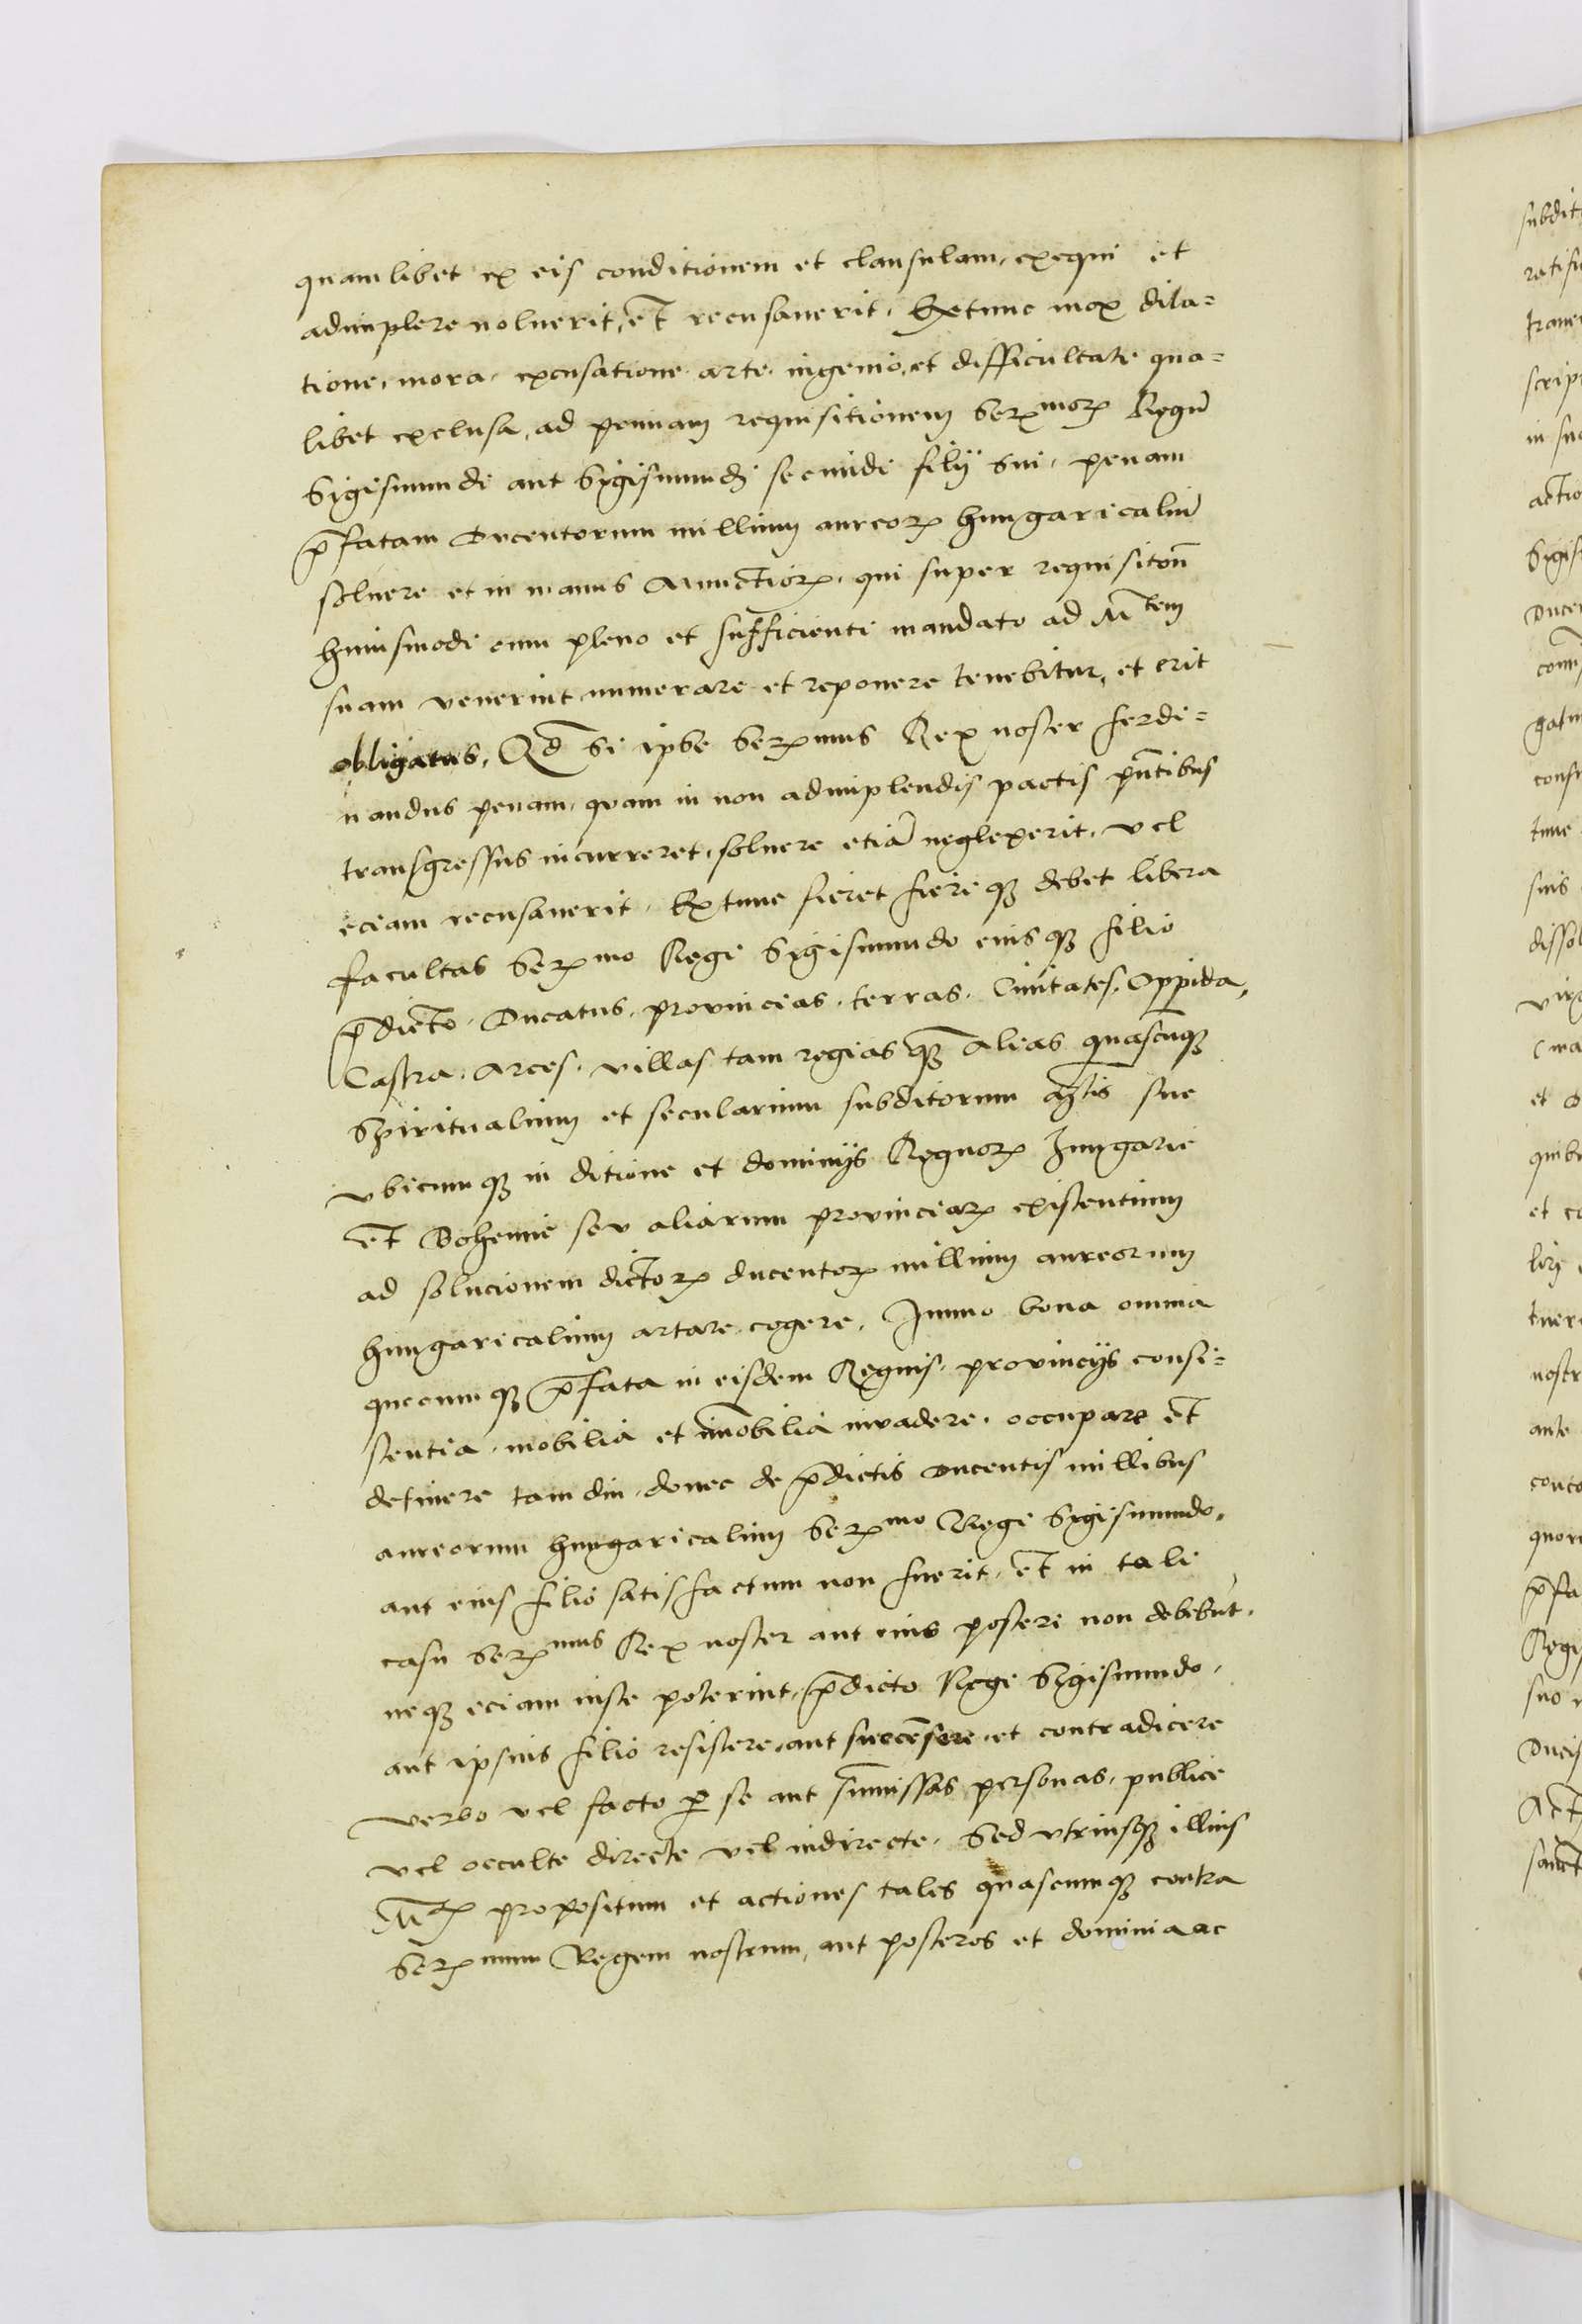 quamlibet ex eis conditionem et clausulam, exequi et
adimplere noluerit, et recusauerit, Extunc mox dila-
tione, mora, excusatione arte, ingenio, et difficultate qua-
libet exclusa, ad primam requisitionem Serᵐᵒꝝ Regũ
Sigismundi aut Sigismundi secundi filij sui, penam
p̃fatam Ducentorum millium aureoꝝ hungaricaliũ
soluere et in manus Nunctioꝝ, qui super requisitoñ
huiusmodi cum pleno et sufficienti mandato ad Mᵗᵉᵐ
suam venerint numerare et reponere tenebitur, et erit
obligatus, Qd̃ si ipse Serᵐᵘˢ Rex noster ferdi-
nandus penam, quam in non adimplendis pactis pñtibus
transgressus incurreret, soluere etiã neglexerit, vel
eciam recusauerit, Extunc fieret fierique debet libera
facultas Serᵐᵒ Regi Sigismundo eiusque filio
p̃dicto, Ducatus, prouincias, terras, Ciuitates, Oppida,
Castra, Arces, villas tam regias quam Alias quascunque
Spiritualium et secularium subditorum Mᵗⁱˢ sue
vbicumque in ditione et dominijs Regnoꝝ Hungarie
et Bohemie seu aliarum prouinciaꝝ existentium
ad solucionem dictoꝝ ducentoꝝ millium aureorum
hungaricalium artare, cogere, Immo bona omnia
quecumque p̃fata in eisdem Regnis, prouincijs consi-
stentia, mobilia et im̃obilia inuadere, occupare et
detinere tam diu, donec de p̃dictis ducentis millibus
aureorum hungaricalium Serᵐᵒ Regi Sigismundo,
aut eius filio satisfactum non fuerit, et in tali
casu Serᵐᵘˢ Rex noster aut eius posteri non debebũt,
neque eciam iuste poterint, p̃dicto Regi Sigismundo,
aut ipsius filio resistere, aut succẽsere, et contradicere
verbo vel facto per se aut sum̃issas personas, publice
vel occulte directe vel indirecte, Sed vtriusque illius
propositum et actiones tales quascumque contra
Serᵐᵘᵐ Regem nostrum, aut posteros et dominia ac